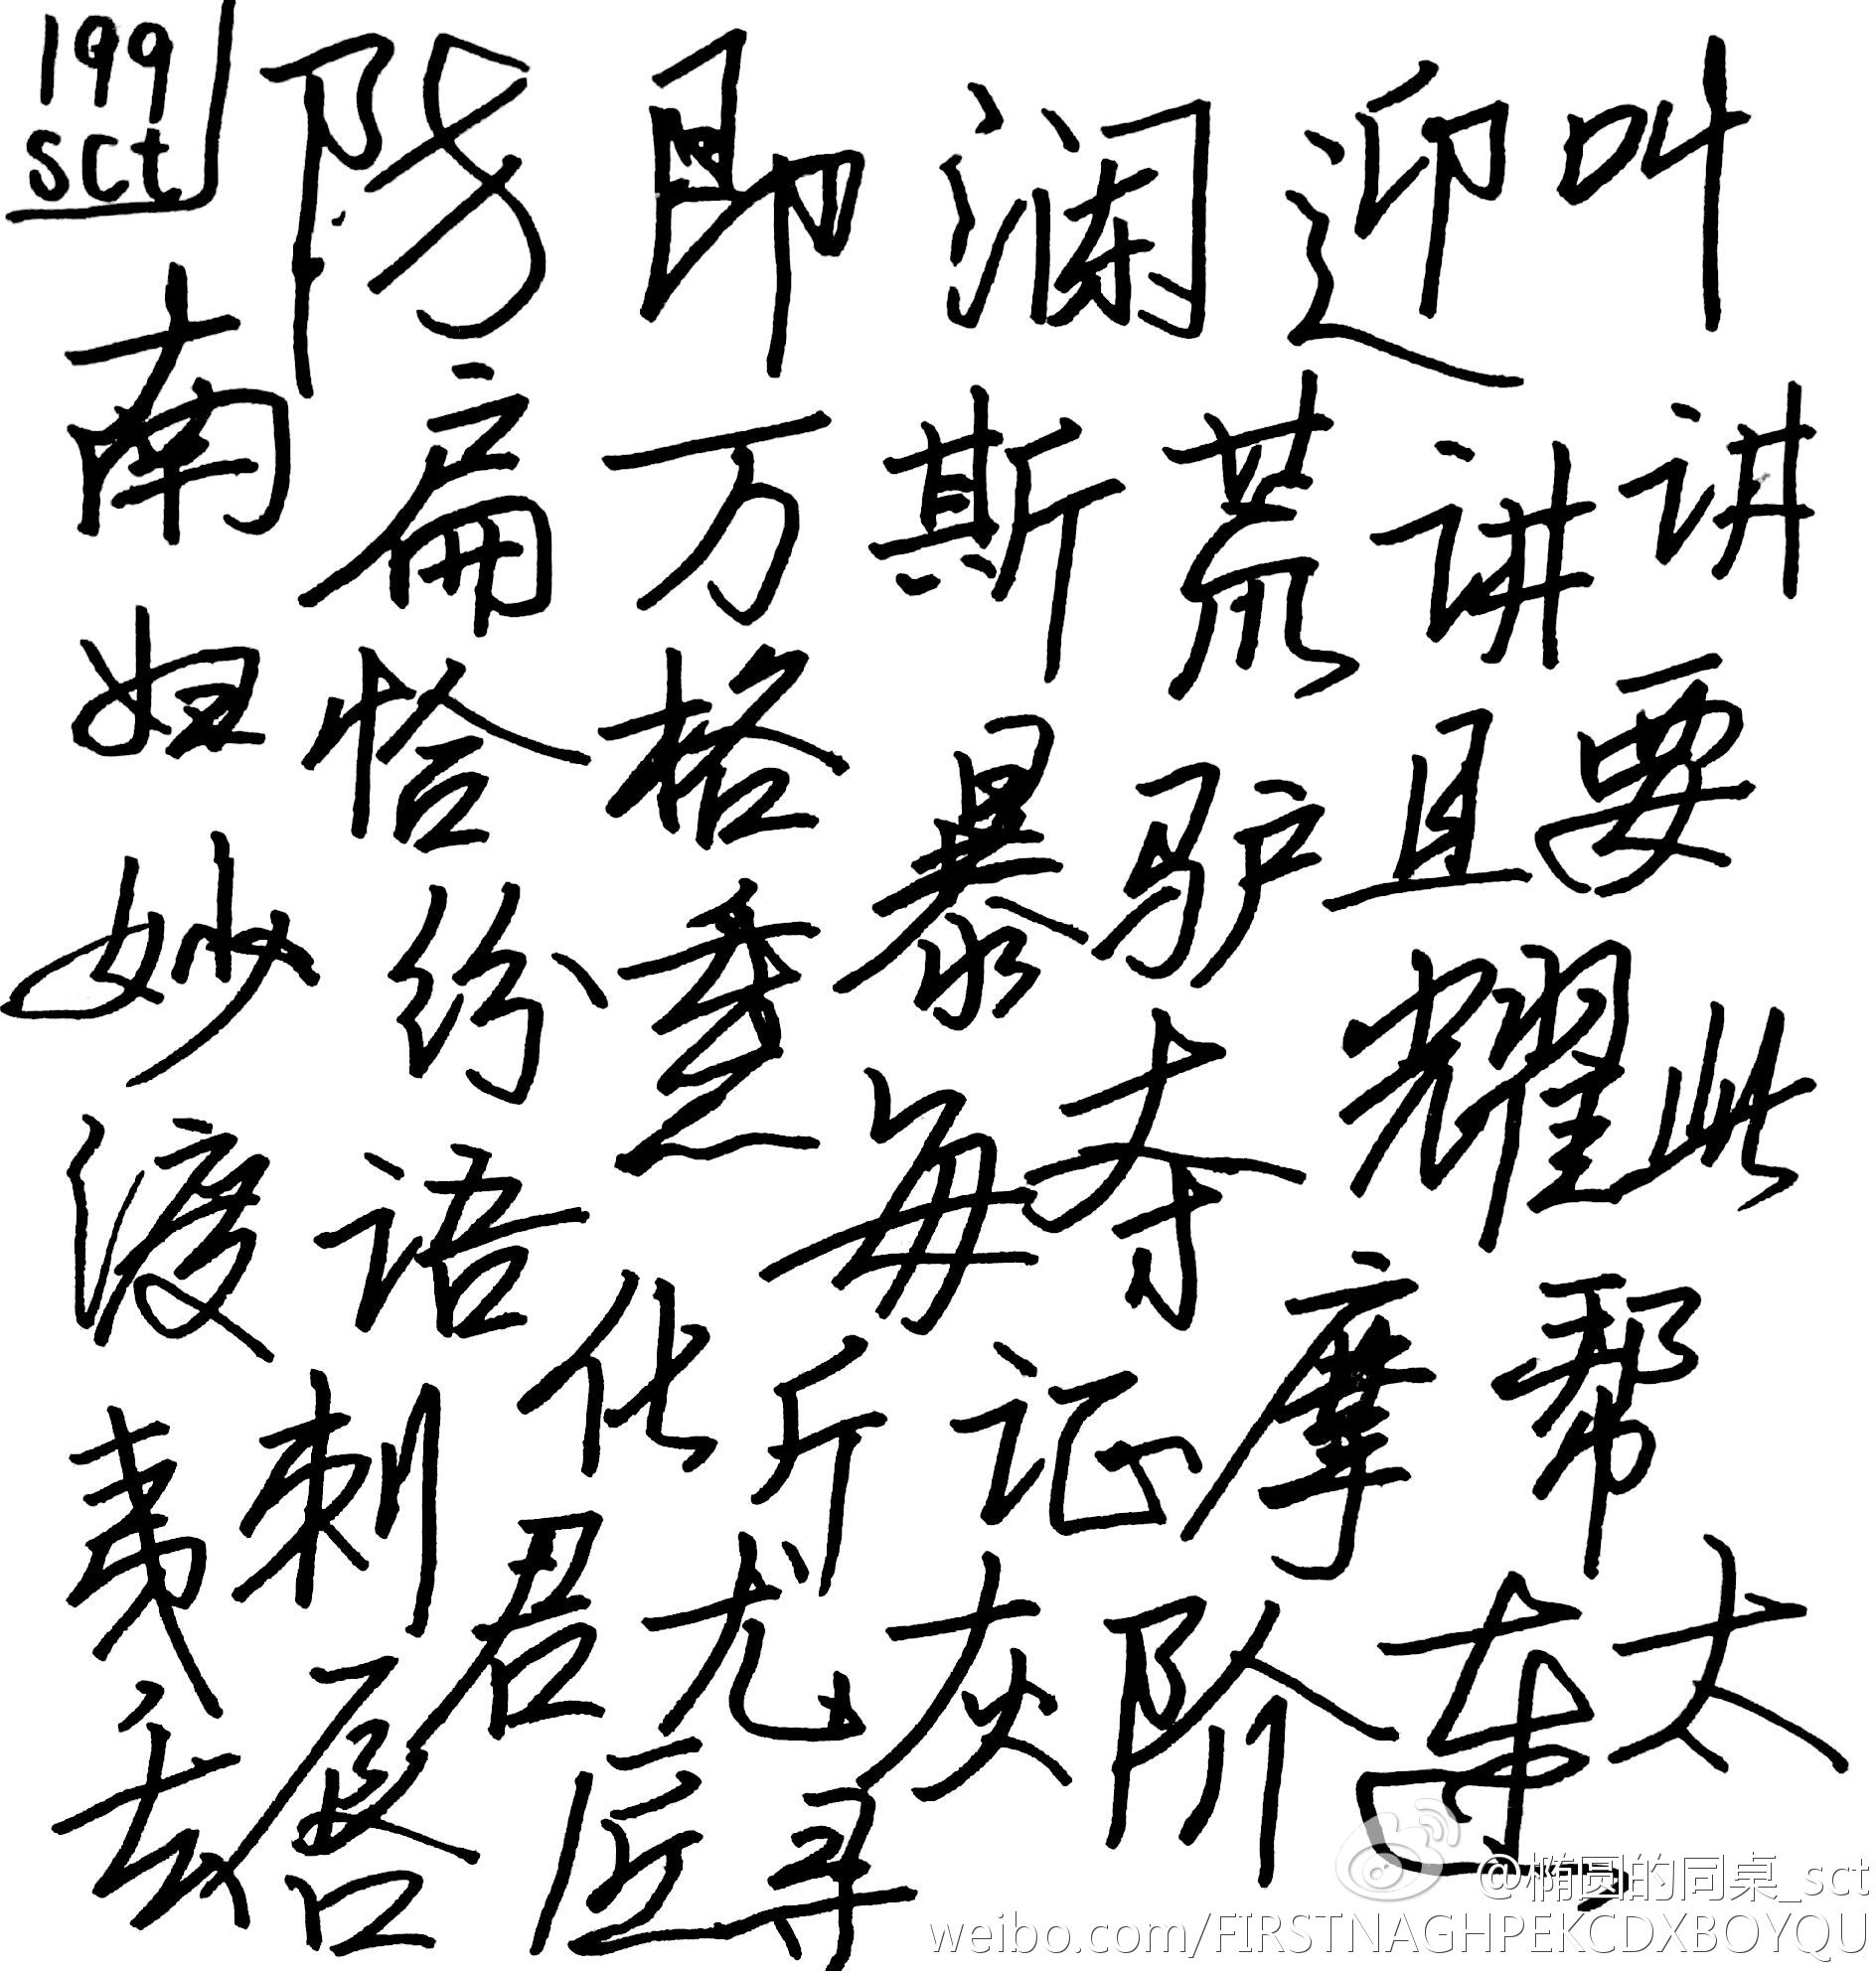 199
sct
阶 即 澜 迎 叫
南 扁 万 斯 荒 讲 讲
妞 恰 格 暴 驴 且 要
妙 份 垂 每 寺 耀 此
渡 语 化 斤 证 摩 帮
夷 刺 君 尤 灰 阶 连 丈
玄 唇 匠 寻
@椭圆的同桌_sct
weibo.com/FIRSTNAGHPEKCDXBOYQU